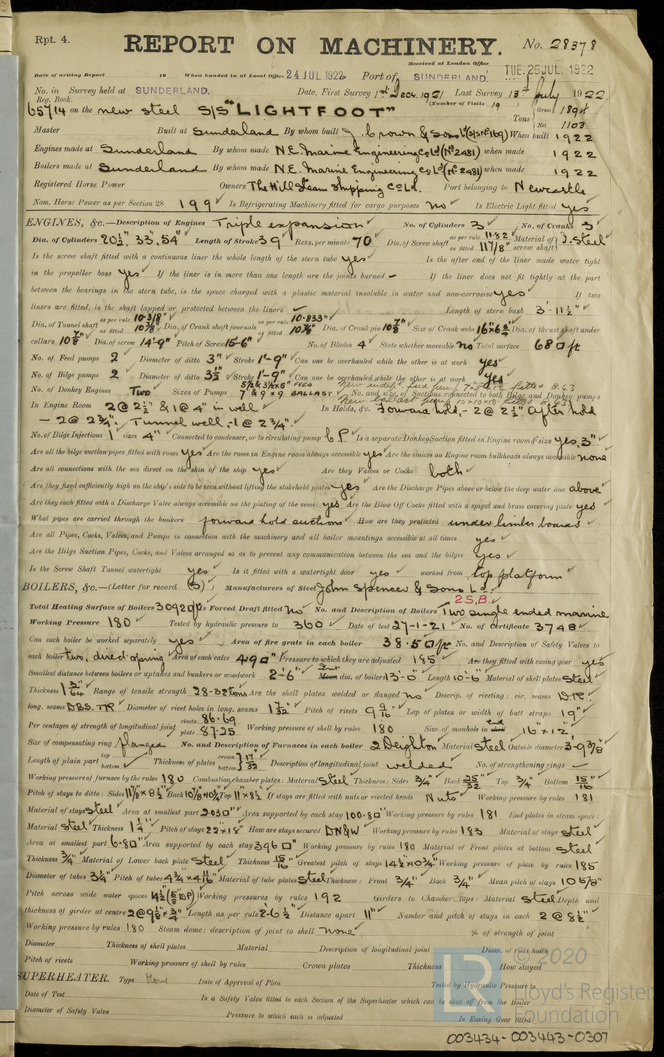 Rpt. 4.
REPORT ON MACHINERY. No. 28378
Received at London Office
Date of writing Report 19 When handed in at Local Office 24 JUL 1922 Port of SUNDERLAND. TUE. 25 JUL. 1922
No. in Survey held at SUNDERLAND. Date, First Survey 1st Decr. 1921 Last Survey 18th July 1922
Reg. Book. (Number of Visits 19
65714 on the new steel S/S "LIGHTFOOT" Tons Gross 1894 Net 1103
Master Built at Sunderland By whom built J. Crown & Sons Ld (S/S No 169) When built 1922
Engines made at Sunderland By whom made N.E. Marine Engineering Co Ld (No 2481) when made 1922
Boilers made at Sunderland By whom made N.E. Marine Engineering Co Ld (No 2481) when made 1922
Registered Horse Power Owners The Hill Steam Shipping Co Ld. Port belonging to Newcastle
Nom. Horse Power as per Section 28 199 Is Refrigerating Machinery fitted for cargo purposes no Is Electric Light fitted yes
ENGINES, &c.—Description of Engines Triple expansion No. of Cylinders 3 No. of Cranks 3
Dia. of Cylinders 20½", 33", 54" Length of Stroke 39 Revs. per minute 70 Dia. of Screw shaft as per rule 11.82 as fitted 11 7/8" Material of screw shaft I. Steel
Is the screw shaft fitted with a continuous liner the whole length of the stern tube yes Is the after end of the liner made water tight
in the propeller boss yes If the liner is in more than one length are the joints burned – If the liner does not fit tightly at the part
between the bearings in the stern tube, is the space charged with a plastic material insoluble in water and non-corrosive yes If two
liners are fitted, is the shaft lapped or protected between the liners – Length of stern bush 3'-11½"
Dia. of Tunnel shaft as per rule 10.318" as fitted 10 7/8" Dia. of Crank shaft journals as per rule 10.833" as fitted 10 7/8" Dia. of Crank pin 10 7/8" Size of Crank webs 16 x 6¾" Dia. of thrust shaft under
collars 10 7/8" Dia. of screw 14'-9" Pitch of Screw 15'-6" No. of Blades 4 State whether moveable no Total surface 68 □ ft
No. of Feed pumps 2 Diameter of ditto 3" Stroke 1'-9" Can one be overhauled while the other is at work yes
No. of Bilge pumps 2 Diameter of ditto 3½" Stroke 1'-9" Can one be overhauled while the other is at work yes
No. of Donkey Engines Two Sizes of Pumps 5½ & 3½ x 5" FEED 7 & 9 x 9 BALLAST No. and size of Suctions connected to both Bilge and Donkey pumps
In Engine Room 2 @ 2½" & 1 @ 4" in well In Holds, &c. Forward hold,- 2 @ 2½" After hold
- 2 @ 2¾". Tunnel well:-1 @ 2¾".
No. of Bilge Injections 1 sizes 4" Connected to condenser, or to circulating pump C.P. Is a separate Donkey Suction fitted in Engine room & size yes, 3"
Are all the bilge suction pipes fitted with roses yes Are the roses in Engine room always accessible yes Are the sluices on Engine room bulkheads always accessible none
Are all connections with the sea direct on the skin of the ship yes Are they Valves or Cocks both
Are they fixed sufficiently high on the ship's side to be seen without lifting the stokehold plates yes Are the Discharge Pipes above or below the deep water line above
Are they each fitted with a Discharge Valve always accessible on the plating of the vessel yes Are the Blow Off Cocks fitted with a spigot and brass covering plate yes
What pipes are carried through the bunkers forward hold suctions How are they protected under limber boards
Are all Pipes, Cocks, Valves, and Pumps in connection with the machinery and all boiler mountings accessible at all times yes
Are the Bilge Suction Pipes, Cocks, and Valves arranged so as to prevent any communication between the sea and the bilges yes
Is the Screw Shaft Tunnel watertight yes Is it fitted with a watertight door yes worked from top platform
BOILERS, &c.—(Letter for record (S)) Manufacturers of Steel John Spencer & Sons Ld.
2 S.B.
Total Heating Surface of Boilers 3092 □ Is Forced Draft fitted no No. and Description of Boilers Two single ended marine
Working Pressure 180 Tested by hydraulic pressure to 360 Date of test 27-1-21 No. of Certificate 3748
Can each boiler be worked separately yes Area of fire grate in each boiler 38.5 □ ft No. and Description of Safety Valves to
each boiler two, direct spring Area of each valve 4.90 □" Pressure to which they are adjusted 185 Are they fitted with easing gear yes
Smallest distance between boilers or uptakes and bunkers or woodwork 2'-6" dia. of boilers 13'-0" Length 10'-6" Material of shell plates Steel
Thickness Range of tensile strength 28-32 tons Are the shell plates welded or flanged no Descrip. of riveting: cir. seams D.R.
long. seams DBS. TR Diameter of rivet holes in long. seams 1 7/32" Pitch of rivets 9 9/16" Lap of plates or width of butt straps 19"
Per centages of strength of longitudinal joint rivets 86.69 plate 87.25 Working pressure of shell by rules 180 Size of manhole in end 16" x 12"
Size of compensating ring flanged No. and Description of Furnaces in each boiler 2 Deighton Material steel Outside diameter 3-9 3/8"
Length of plain part top bottom Thickness of plates crown bottom Description of longitudinal joint welded No. of strengthening rings –
Working pressure of furnace by the rules 180 Combustion chamber plates: Material Steel Thickness: Sides ¾" Back 25/32 Top ¾" Bottom 15/16
Pitch of stays to ditto: Sides 11 1/8 x 8½" Back Top 11" x 8½" If stays are fitted with nuts or riveted heads Nuts Working pressure by rules 181
Material of stays Steel Area at smallest part 2.03 □" Area supported by each stay 100.80" Working pressure by rules 181 End plates in steam space:
Material Steel Thickness Pitch of stays 22" x 18" How are stays secured DN&W Working pressure by rules 183 Material of stays steel
Area at smallest part 6.80" Area supported by each stay 396 □" Working pressure by rules 180 Material of Front plates at bottom Steel
Thickness ¾" Material of Lower back plate Steel Thickness 15/16" Greatest pitch of stays 14½ x 10¾" Working pressure of plate by rules 185
Diameter of tubes 3¼" Pitch of tubes Material of tube plates Steel Thickness: Front ¾" Back ¾" Mean pitch of stays 10 5/8"
Pitch across wide water spaces 14½" Working pressures by rules 192 Girders to Chamber tops: Material Steel Depth and
thickness of girder at centre Length as per rule 2-6½" Distance apart 11" Number and pitch of stays in each 2 @ 8½"
Working pressure by rules 180 Steam dome: description of joint to shell none % of strength of joint
Diameter Thickness of shell plates Material Description of longitudinal joint Diam. of rivet holes
Pitch of rivets Working pressure of shell by rules Crown plates Thickness How stayed
SUPERHEATER. Type None Date of Approval of Plan Tested by Hydraulic Pressure to
Date of Test Is a Safety Valve fitted to each Section of the Superheater which can be shut off from the Boiler
Diameter of Safety Valve Pressure to which each is adjusted Is Easing Gear fitted
© 2020
Lloyd's Register
Foundation
003434-003443-0307